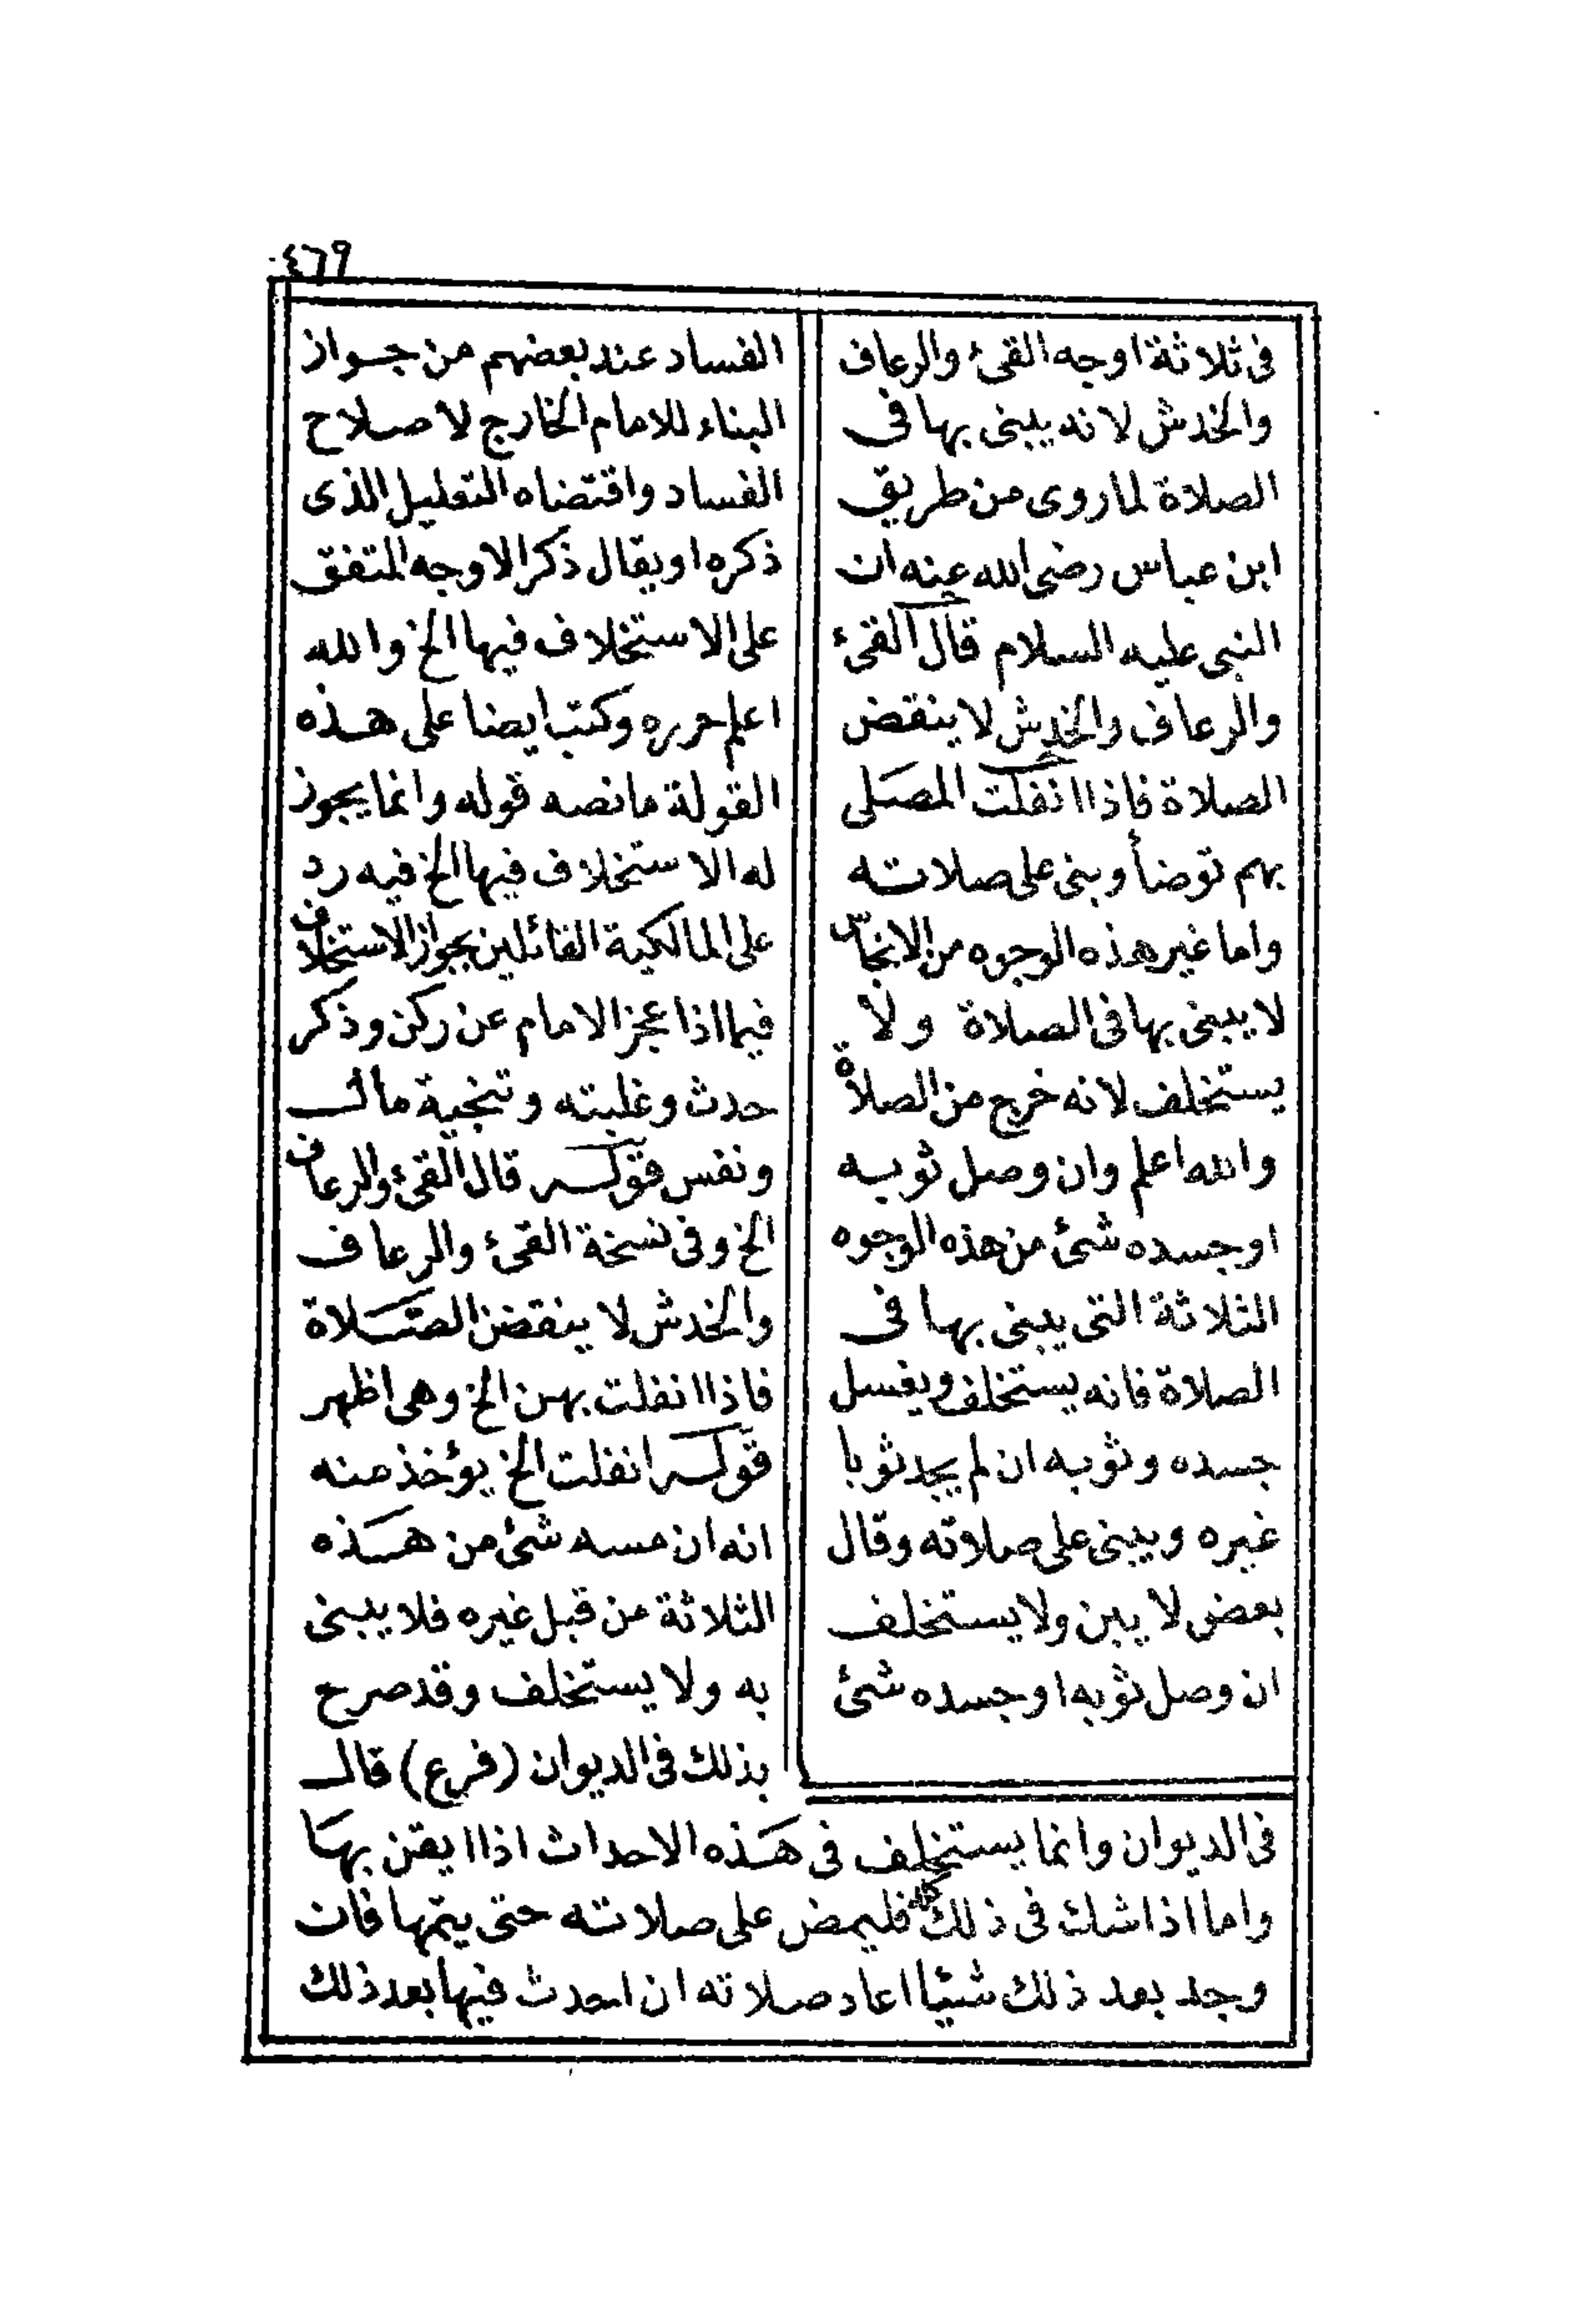 ٤٦٩
فى ثلاثة اوجه القئ والرعاف
والخدش لانه يبنى بها فى
الصلاة لما روى من طريق
ابن عباس رضى الله عنه ان
النبى عليه السلام قال القئ
والرعاف والخدش لا ينقض
الصلاة فاذا انفلت المصلى
بهم توضأ وبنى على صلاته
واما غير هذه الوجوه من الانجاس
لا يبنى بها فى الصلاة ولا
يستخلف لانه خرج من الصلاة
والله اعلم وان وصل ثوبه
اوجسده شئ من هذه الوجوه
الثلاثة التى يبنى بها فى
الصلاة فانه يستخلف ويغسل
جسده وثوبه ان لم يجد ثوبا
غيره ويبنى على صلاته وقال
بعض لا يبن ولا يستخلف
ان وصل ثوبه اوجسده شئ
الفساد عند بعضهم من جواز
البناء للامام الخارج لاصلاح
الفساد واقتضاه التعليل الذى
ذكره اويقال ذكر الاوجه المتفق
على الاستخلاف فيها الخ والله
اعلم حرره وكتب ايضا على هذه
القولة ما نصه قوله وانما يجوز
له الاستخلاف فيها الخ فيه رد
على المالكية القائلين بجواز الاستخلاف
فيما اذا عجز الامام عن ركن وذكر
حدث وغلبته وتنجية مال
ونفس قوله قال القئ والرعاف
الخ وفى نسخة القئ والرعاف
والخدش لا ينقضن الصلاة
فاذا انفلت بهن الخ وهى اظهر
قوله انفلت الخ يؤخذ منه
انه ان مسه شئ من هذه
الثلاثة من قبل غيره فلا يبنى
به ولا يستخلف وقد صرح
بذلك فى الديوان (فرع) قال
فى الديوان وانما يستخلف فى هذه الاحداث اذا ايقن بها
واما اذا شك فى ذلك كله فليمض على صلاته حتى يتمها فان
وجد بعد ذلك شيئا اعاد صلاته ان احدث فيها بعد ذلك